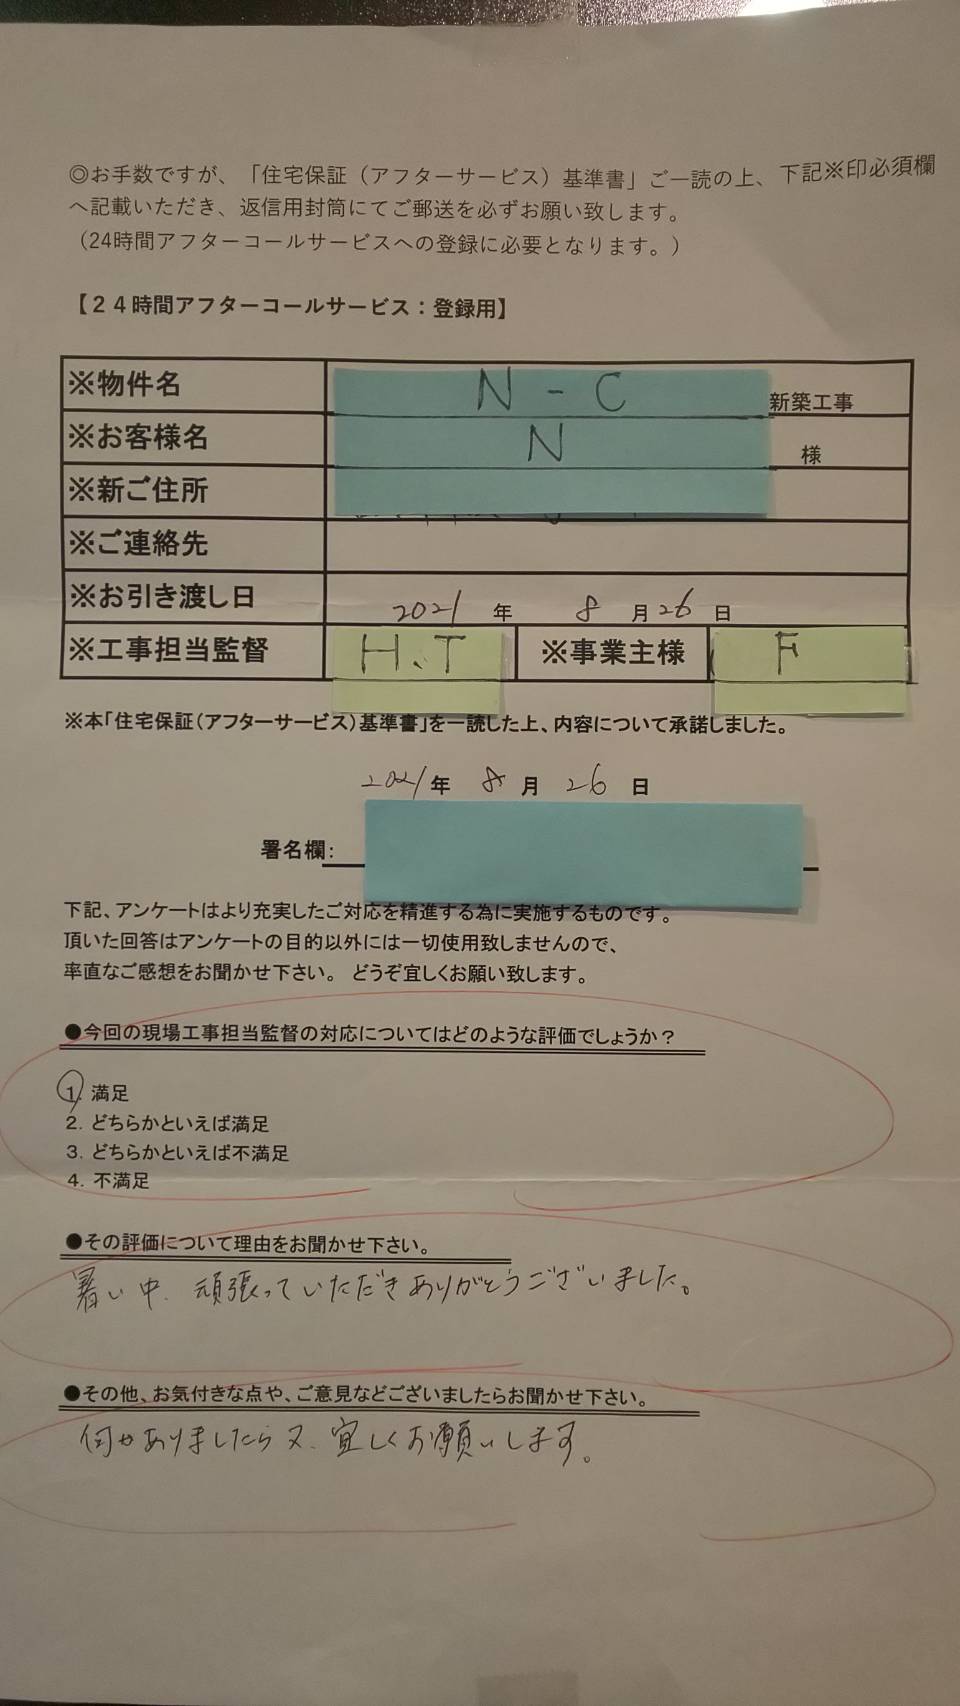 ◎お手数ですが、「住宅保証（アフターサービス）基準書」ご一読の上、下記※印必須欄
へ記載いただき、返信用封筒にてご郵送を必ずお願い致します。
（24時間アフターコールサービスへの登録に必要となります。）
【２４時間アフターコールサービス：登録用】
※物件名 N-C 新築工事
※お客様名 N 様
※新ご住所
※ご連絡先
※お引き渡し日 2021 年 8 月 26 日
※工事担当監督 H.T ※事業主様 F
※本「住宅保証（アフターサービス）基準書」を一読した上、内容について承諾しました。
2021年 8月 26日
署名欄：
下記、アンケートはより充実したご対応を精進する為に実施するものです。
頂いた回答はアンケートの目的以外には一切使用致しませんので、
率直なご感想をお聞かせ下さい。 どうぞ宜しくお願い致します。
●今回の現場工事担当監督の対応についてはどのような評価でしょうか？
1. 満足
2. どちらかといえば満足
3. どちらかといえば不満足
4. 不満足
●その評価について理由をお聞かせ下さい。
暑い中、頑張っていただきありがとうございました。
●その他、お気付きな点や、ご意見などございましたらお聞かせ下さい。
何かありましたら又、宜しくお願いします。